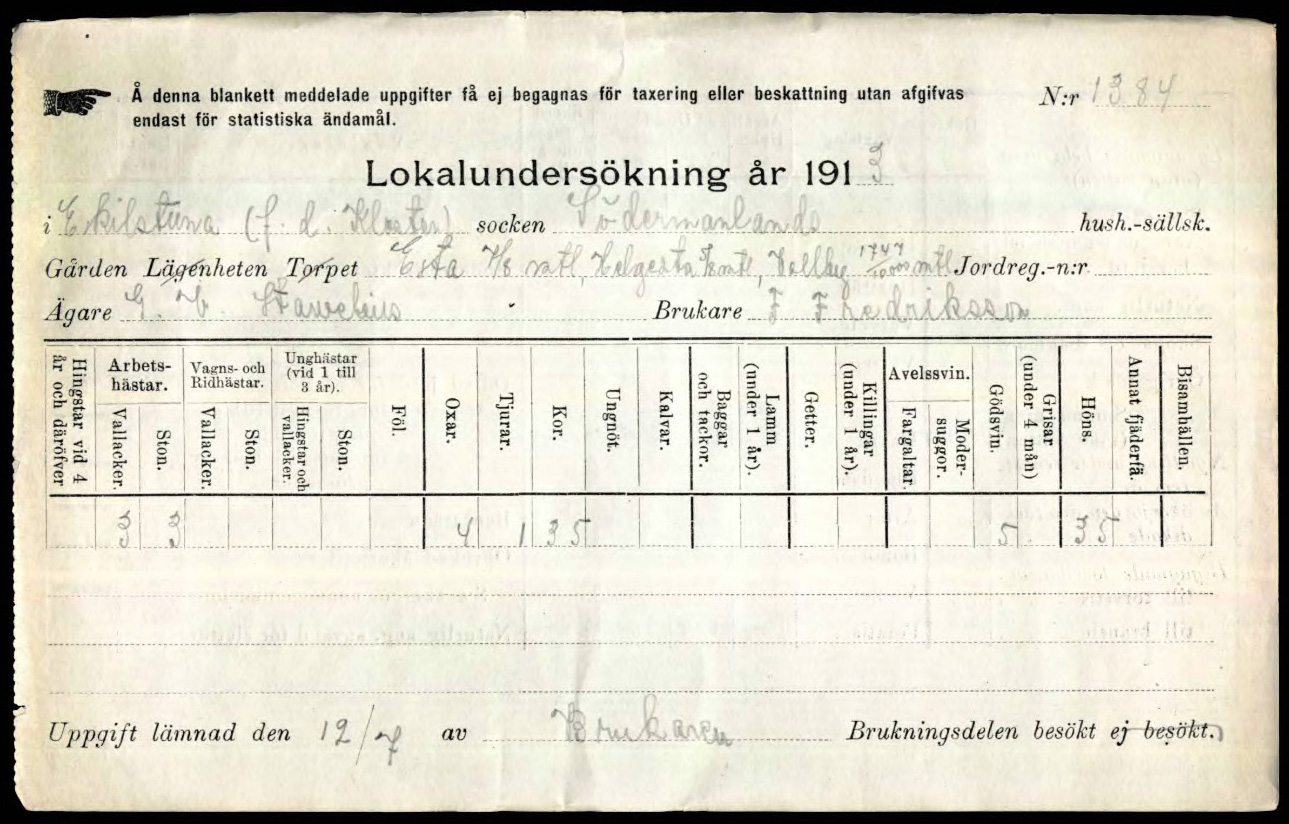 Å denna blankett meddelade uppgifter få ej begagnas för taxering eller beskattning utan afgifvas
endast för statistiska ändamål.
N:r 1384
Lokalundersökning år 1913
i Eskilstuna (f. d. Kloster) socken Södermanlands hush.-sällsk.
Gården Lägenheten Torpet Esta 1/8 mtl, Helgesta mtl, Vallby 1747/10000 mtl Jordreg.-n:r
Ägare G. Brukare F Fredriksson
Hingstar vid 4 år och däröfver
Arbetshästar.
Vallacker.
Ston.
Vagns- och Ridhästar.
Vallacker.
Ston.
Unghästar (vid 1 till 3 år).
Hingstar och vallacker.
Ston.
Föl.
Oxar.
Tjurar.
Kor.
Ungnöt.
Kalvar.
Baggar och tackor.
Lamm (under 1 år).
Getter.
Killingar (under 1 år).
Avelssvin.
Fargaltar.
Modersuggor.
Gödsvin.
Grisar (under 4 mån)
Höns.
Annat fjäderfä.
Bisamhällen.
3 3 4 1 35 5 35
Uppgift lämnad den 12/7 av Brukaren Brukningsdelen besökt ej besökt.